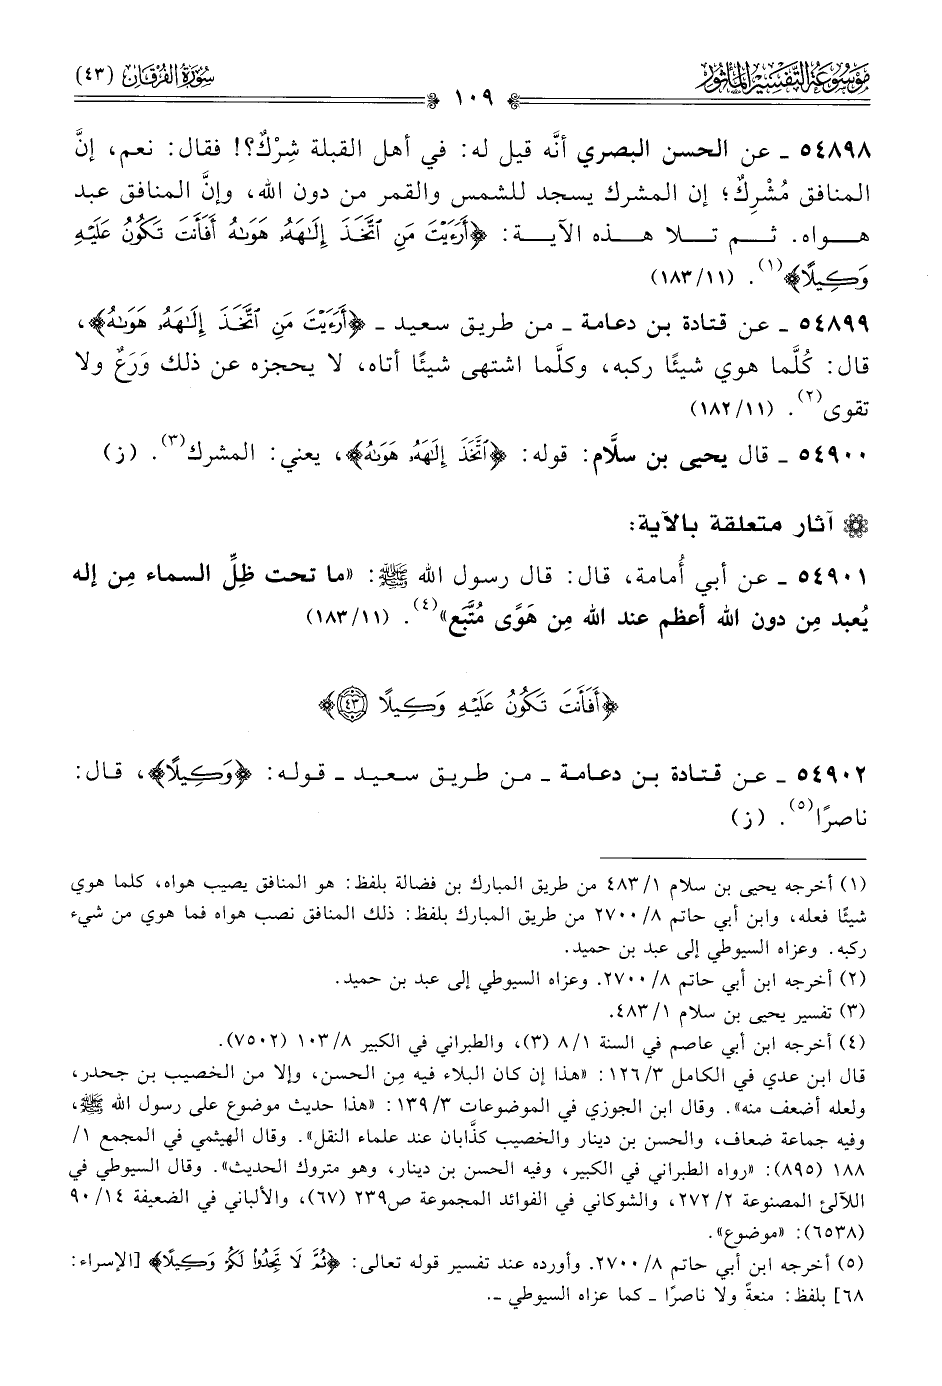 مَوْسُوعَة التَّفْسِير المَأثُور
١٠٩
سُورَة الفُرْقَان (٤٣)
٥٤٨٩٨ ـ عن الحسن البصري أنَّه قيل له: في أهل القبلة شِركٌ؟! فقال: نعم، إنَّ
المنافق مُشْرِكٌ؛ إن المشرك يسجد للشمس والقمر من دون الله، وإنَّ المنافق عبد
هـواه. ثـم تـلا هـذه الآيـة: ﴿أَرَءَيْتَ مَنِ ٱتَّخَذَ إِلَٰهَهُۥ هَوَىٰهُ أَفَأَنتَ تَكُونُ عَلَيْهِ
وَكِيلًا﴾(١). (١٨٣/١١)
٥٤٨٩٩ ـ عن قتادة بن دعامة ـ من طريق سعيد ـ ﴿أَرَءَيْتَ مَنِ ٱتَّخَذَ إِلَٰهَهُۥ هَوَىٰهُ﴾،
قال: كُلَّما هوي شيئًا ركبه، وكلَّما اشتهى شيئًا أتاه، لا يحجزه عن ذلك وَرَعٌ ولا
تقوى(٢). (١٨٢/١١)
٥٤٩٠٠ ـ قال يحيى بن سلَّام: قوله: ﴿ٱتَّخَذَ إِلَٰهَهُۥ هَوَىٰهُ﴾، يعني: المشرك(٣). (ز)
آثار متعلقة بالآية:
٥٤٩٠١ ـ عن أبي أُمامة، قال: قال رسول الله ﷺ: «ما تحت ظِلِّ السماء مِن إله
يُعبد مِن دون الله أعظم عند الله مِن هَوًى مُتَّبَع»(٤). (١٨٣/١١)
﴿أَفَأَنتَ تَكُونُ عَلَيْهِ وَكِيلًا ٤٣﴾
٥٤٩٠٢ ـ عن قتادة بن دعامة ـ من طريق سعيد ـ قوله: ﴿وَكِيلًا﴾، قال:
ناصرًا(٥). (ز)
(١) أخرجه يحيى بن سلام ٤٨٣/١ من طريق المبارك بن فضالة بلفظ: هو المنافق يصيب هواه، كلما هوي
شيئًا فعله، وابن أبي حاتم ٢٧٠٠/٨ من طريق المبارك بلفظ: ذلك المنافق نصب هواه فما هوي من شيء
ركبه. وعزاه السيوطي إلى عبد بن حميد.
(٢) أخرجه ابن أبي حاتم ٢٧٠٠/٨. وعزاه السيوطي إلى عبد بن حميد.
(٣) تفسير يحيى بن سلام ٤٨٣/١.
(٤) أخرجه ابن أبي عاصم في السنة ٨/١ (٣)، والطبراني في الكبير ١٠٣/٨ (٧٥٠٢).
قال ابن عدي في الكامل ١٢٦/٣: «هذا إن كان البلاء فيه مِن الحسن، وإلا من الخصيب بن جحدر،
ولعله أضعف منه». وقال ابن الجوزي في الموضوعات ١٣٩/٣: «هذا حديث موضوع على رسول الله ﷺ،
وفيه جماعة ضعاف، والحسن بن دينار والخصيب كذَّابان عند علماء النقل». وقال الهيثمي في المجمع ١/
١٨٨ (٨٩٥): «رواه الطبراني في الكبير، وفيه الحسن بن دينار، وهو متروك الحديث». وقال السيوطي في
اللآلئ المصنوعة ٢٧٢/٢، والشوكاني في الفوائد المجموعة ص٢٣٩ (٦٧)، والألباني في الضعيفة ٩٠/١٤
(٦٥٣٨): «موضوع».
(٥) أخرجه ابن أبي حاتم ٢٧٠٠/٨. وأورده عند تفسير قوله تعالى: ﴿ثُمَّ لَا تَجِدُوا۟ لَكُمْ وَكِيلًا﴾ [الإسراء:
٦٨] بلفظ: منعةً ولا ناصرًا ـ كما عزاه السيوطي ـ.